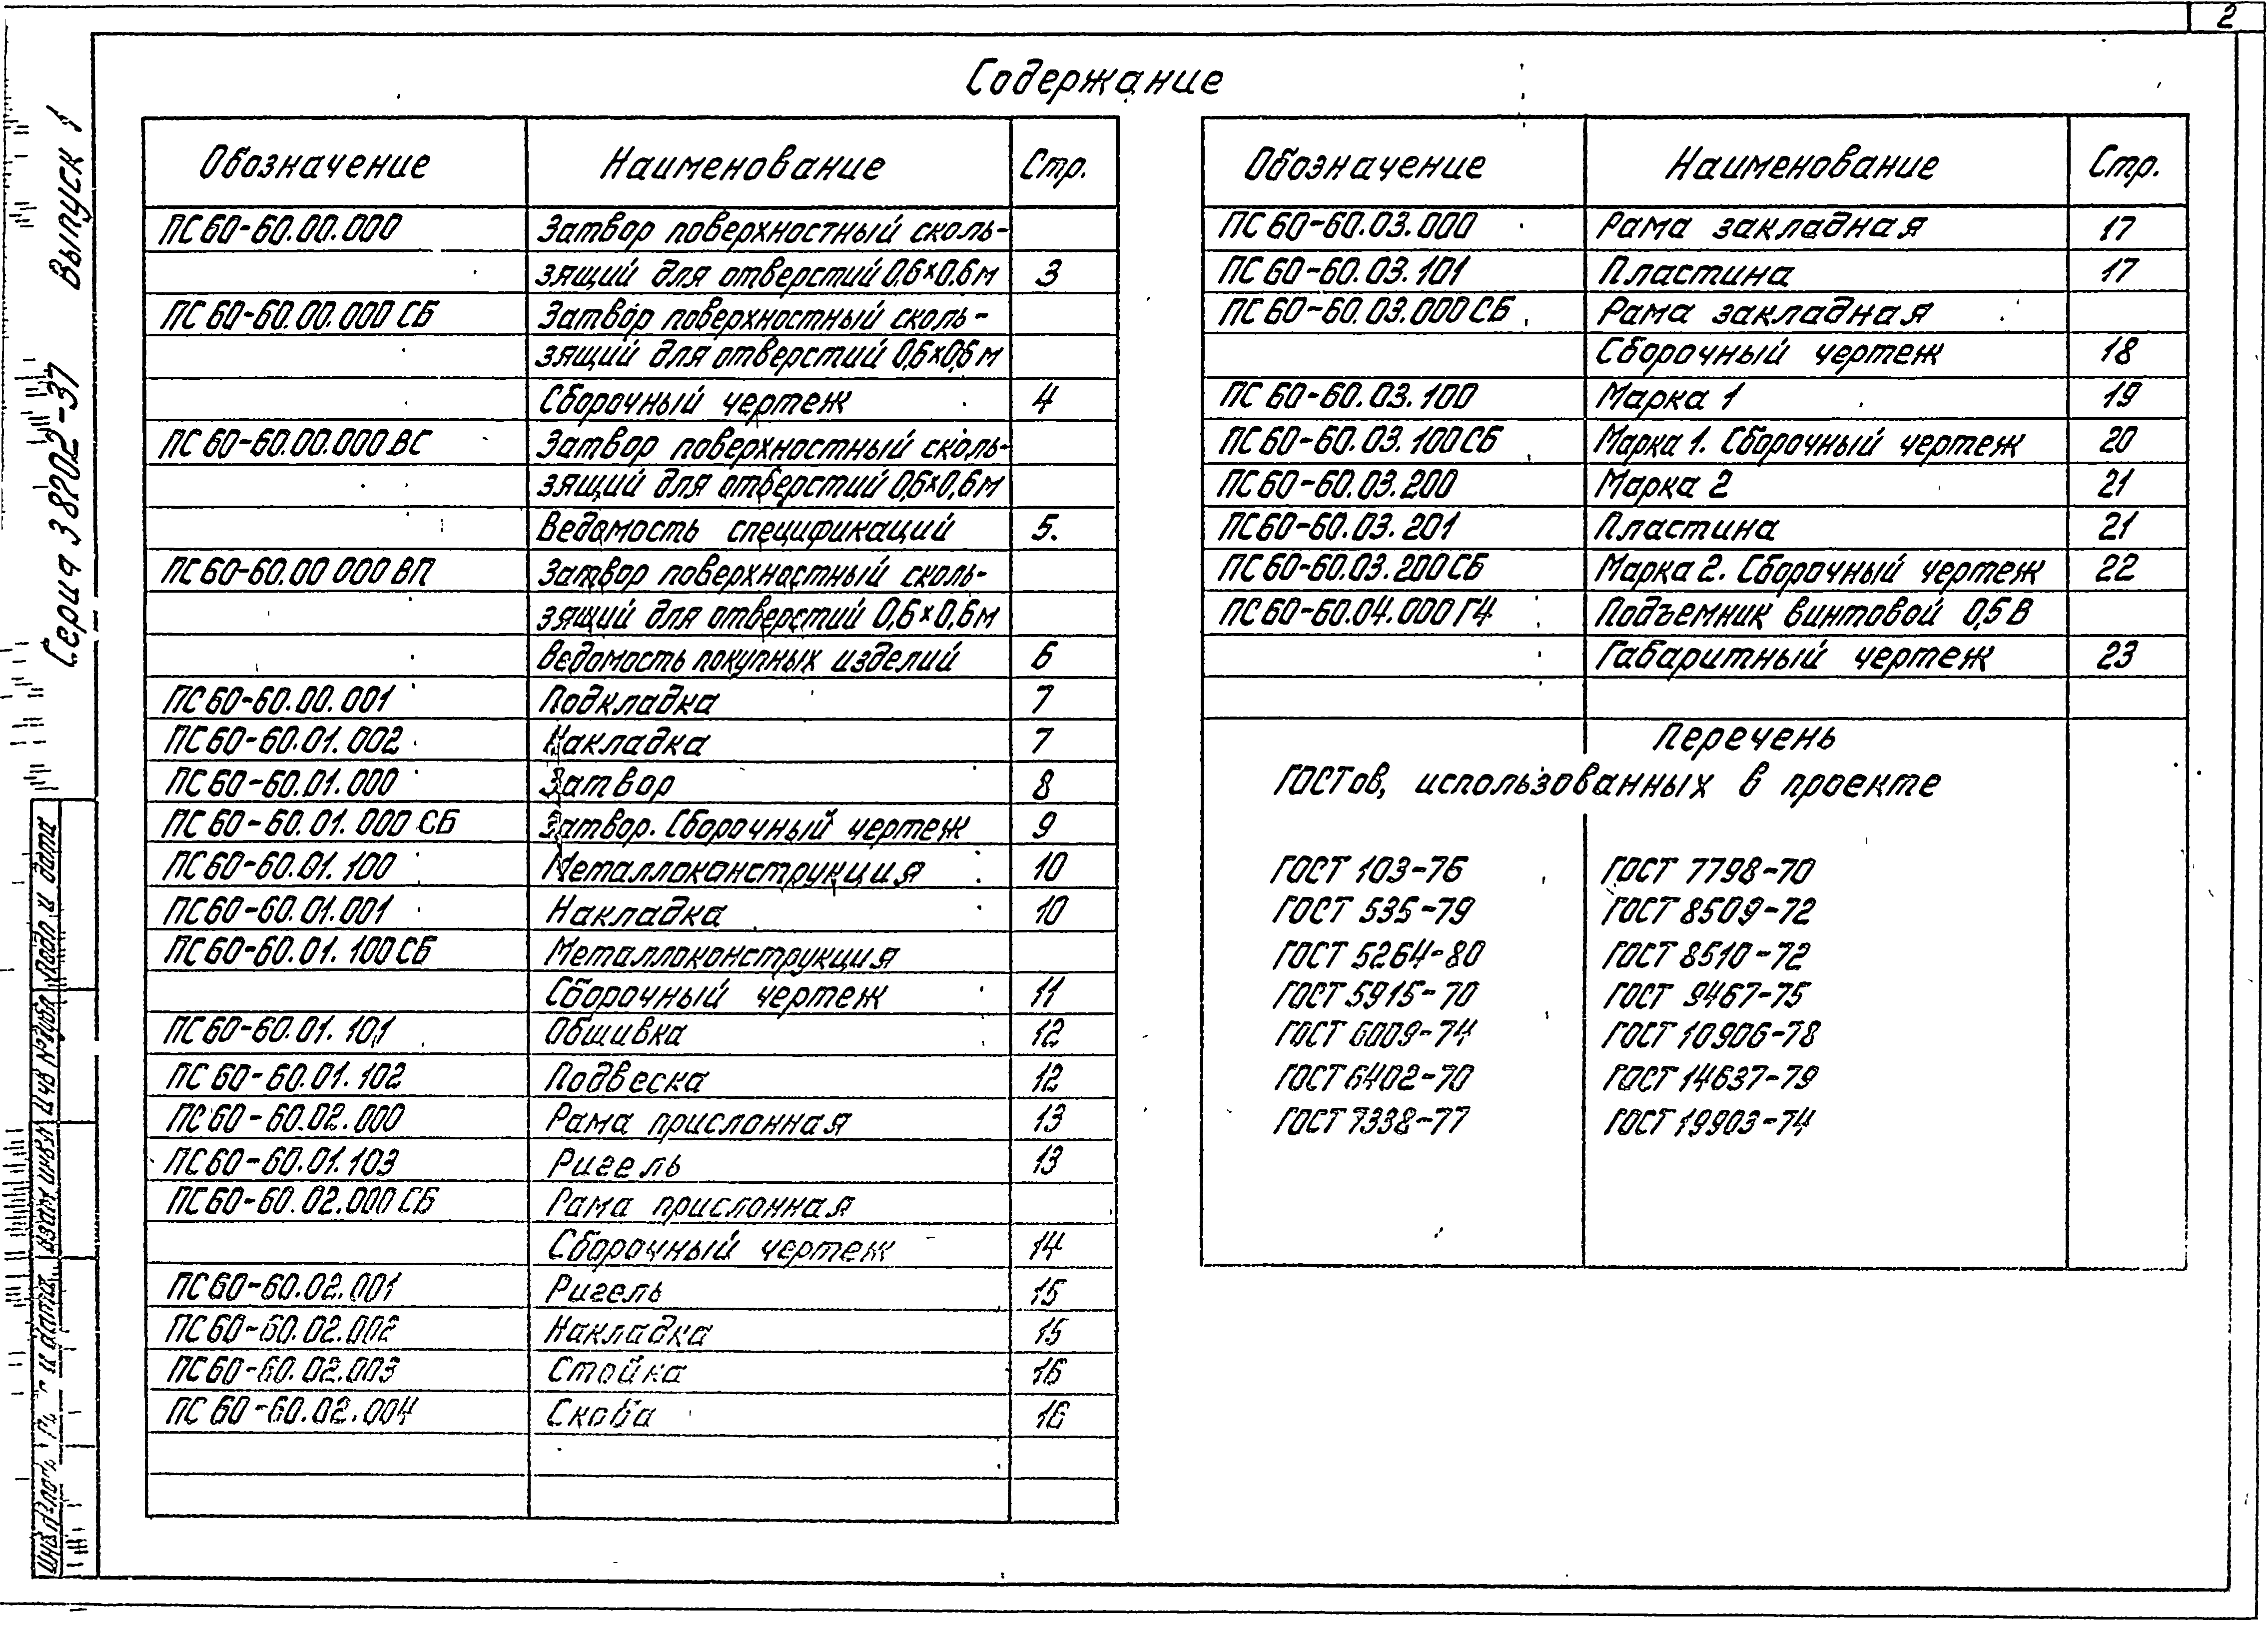 2
Содержание
Серия 3 8202-37 Выпуск 1
Обозначение Наименование Стр.
ПС 60-60.00.000 Затвор поверхностный сколь-
зящий для отверстий 0.6×0.6м 3
ПС 60-60.00.000 СБ Затвор поверхностный сколь-
зящий для отверстий 0,6×0,6м
Сборочный чертеж 4
ПС 60-60.00.000 ВС Затвор поверхностный сколь-
зящий для отверстий 0,6×0,6м
Ведомость спецификаций 5.
ПС 60-60.00 000 ВП Затвор поверхностный сколь-
зящий для отверстий 0,6×0,6м
Ведомость покупных изделий 6
ПС 60-60.00.001 Подкладка 7
ПС 60-60.01.002 Накладка 7
ПС 60-60.01.000 Затвор 8
ПС 60-60.01.000 СБ Затвор. Сборочный чертеж 9
ПС 60-60.01.100 Металлоконструкция 10
ПС 60-60.01.001 Накладка 10
ПС 60-60.01.100 СБ Металлоконструкция
Сборочный чертеж 11
ПС 60-60.01.101 Обшивка 12
ПС 60-60.01.102 Подвеска 12
ПС 60-60.02.000 Рама прислонная 13
ПС 60-60.01.103 Ригель 13
ПС 60-60.02.000 СБ Рама прислонная
Сборочный чертеж 14
ПС 60-60.02.001 Ригель 15
ПС 60-60.02.002 Накладка 15
ПС 60-60.02.003 Стойка 16
ПС 60-60.02.004 Скоба 16
Обозначение Наименование Стр.
ПС 60-60.03.000 Рама закладная 17
ПС 60-60.03.101 Пластина 17
ПС 60-60.03.000 СБ Рама закладная
Сборочный чертеж 18
ПС 60-60.03.100 Марка 1 19
ПС 60-60.03.100 СБ Марка 1. Сборочный чертеж 20
ПС 60-60.03.200 Марка 2 21
ПС 60-60.03.201 Пластина 21
ПС 60-60.03.200 СБ Марка 2. Сборочный чертеж 22
ПС 60-60.04.000 ГЧ Подъемник винтовой 0,5 В
Габаритный чертеж 23
Перечень
ГОСТов, использованных в проекте
ГОСТ 103-76 ГОСТ 7798-70
ГОСТ 535-79 ГОСТ 8509-72
ГОСТ 5264-80 ГОСТ 8510-72
ГОСТ 5915-70 ГОСТ 9467-75
ГОСТ 6009-74 ГОСТ 10906-78
ГОСТ 6402-70 ГОСТ 14637-79
ГОСТ 7338-77 ГОСТ 19903-74